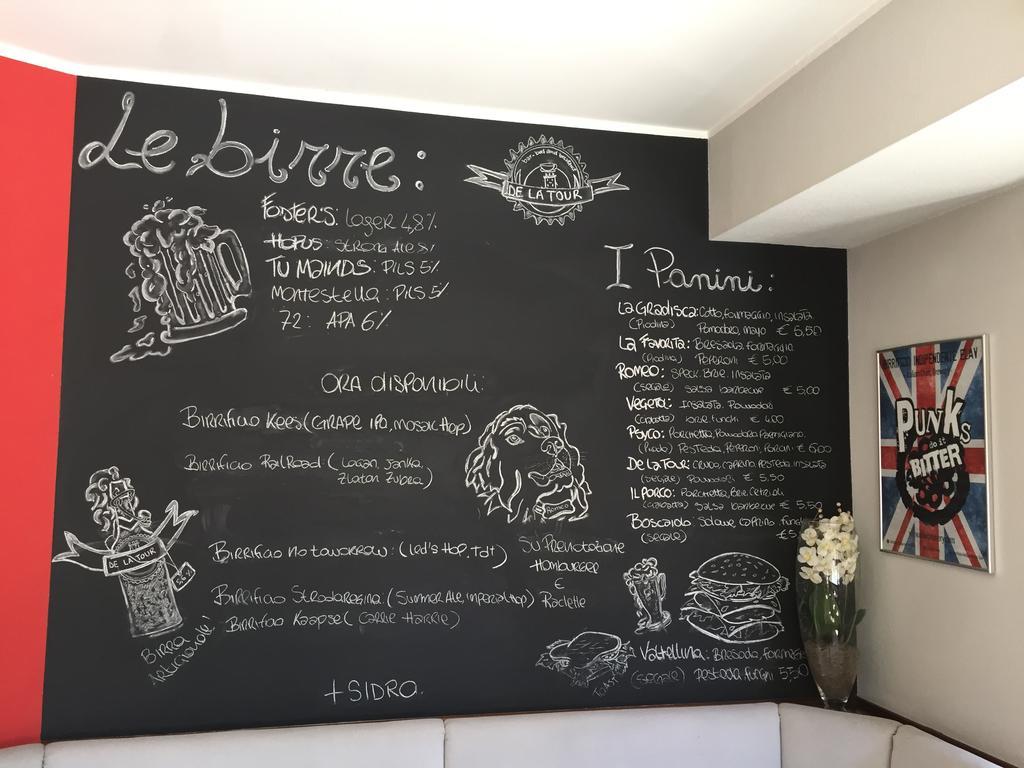 Le birre:
FOSTER'S: Lager 4,8%
HOPUS: STRONG ALE 8%
TU MAINDS: PILS 5%
Montestella: PILS 5%
72: APA 6%
ORA DISPONIBILI:
Birrificio Kees (GRAPE IPA, mosaic Hop)
Birrificio Railroad (Logan, Janka,
Zlatan Zubra)
Birrificio no tomorrow: (Led's Hop, Tdt)
Birrificio Stradaregina (Summer Ale, imperial Hop)
Birrificio Kaapse (Carrie Harrie)
+ SIDRO.
DE LA TOUR
DE LA TOUR
BIRRA
ARTIGIANALE!
Romeo
SU PRENOTAZIONE
Hamburger
E
Raclette
I Panini:
La Gradisca: Cotto, formaggio, insalata
(Piadina) Pomodoro, mayo € 6,50
La Favorita: Bresaola formaggio
(Piadina) Peperoni € 5,00
Romeo: Speck Brie Insalata
(segale) salsa barbecue € 5,00
Vegeta: Insalata Pomodori
(ciabatta) Brie funghi € 4,00
Psyco: Porchetta, Pomodoro Parmigiano
Pestoda, Peperoni, € 6,00
De la Tour: Crudo, caprino, Pestoda, insalata
(segale) Pomodori € 5,50
IL PORCO: Porchetta, Brie Cetrioli
(ciabatta) salsa barbecue € 5,50
Boscaiolo: Salame Caprino fungh
(segale) €5
Valtellina: Bresaola, formaggi
(segale) Pestoda funghi 5,50
TOAST
BIRRIFICIO INDIPENDENTE ELAV
PUNKS
do it
BITTER